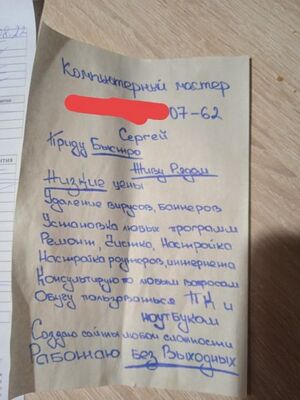 Компьютерный мастер
07-62
Сергей
Приду Быстро
Живу Рядом
Низкие цены
Удаление вирусов, баннеров
Установка любых программ
Ремонт, Чистка, Настройка
Настройка роутеров, интернета
Консультирую по любым вопросам
Обучу пользоваться ПК и
ноутбуком
Создаю сайты любой сложности
Работаю без Выходных